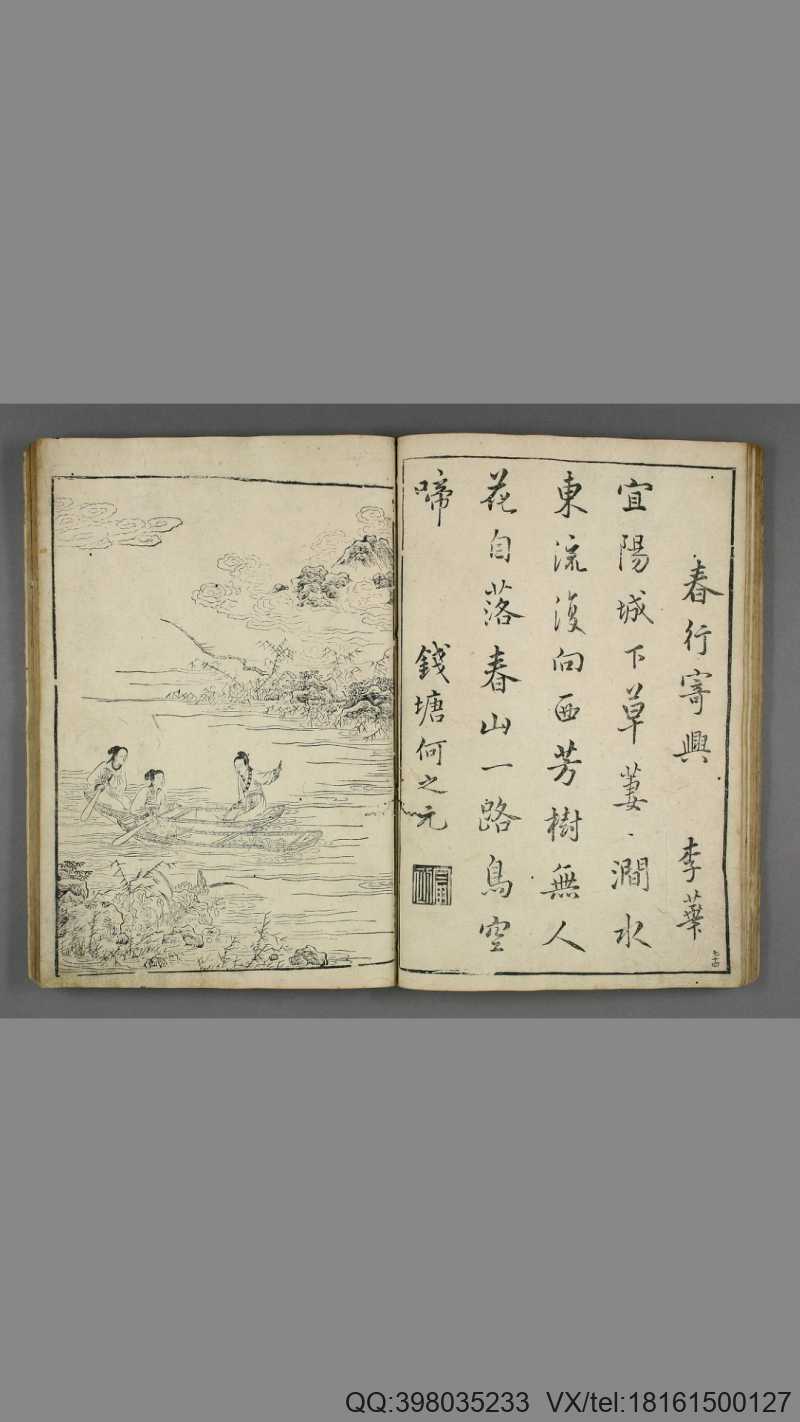 春行寄興 李華
宜陽城下草萋〻澗水
東流復向西芳樹無人
花自落春山一路鳥空
啼
錢塘何之元
QQ:398035233 VX/tel:18161500127